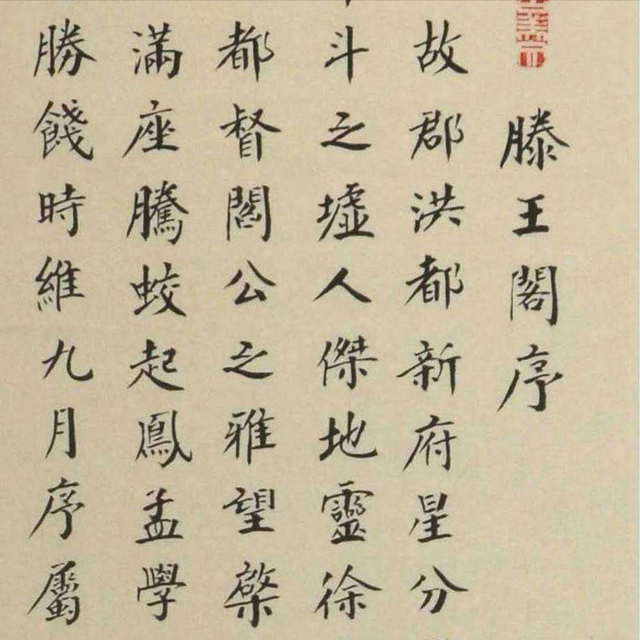 滕王閣序
故郡洪都新府星分
斗之墟人傑地靈徐
都督閻公之雅望棨
滿座騰蛟起鳳孟學
勝餞時維九月序屬